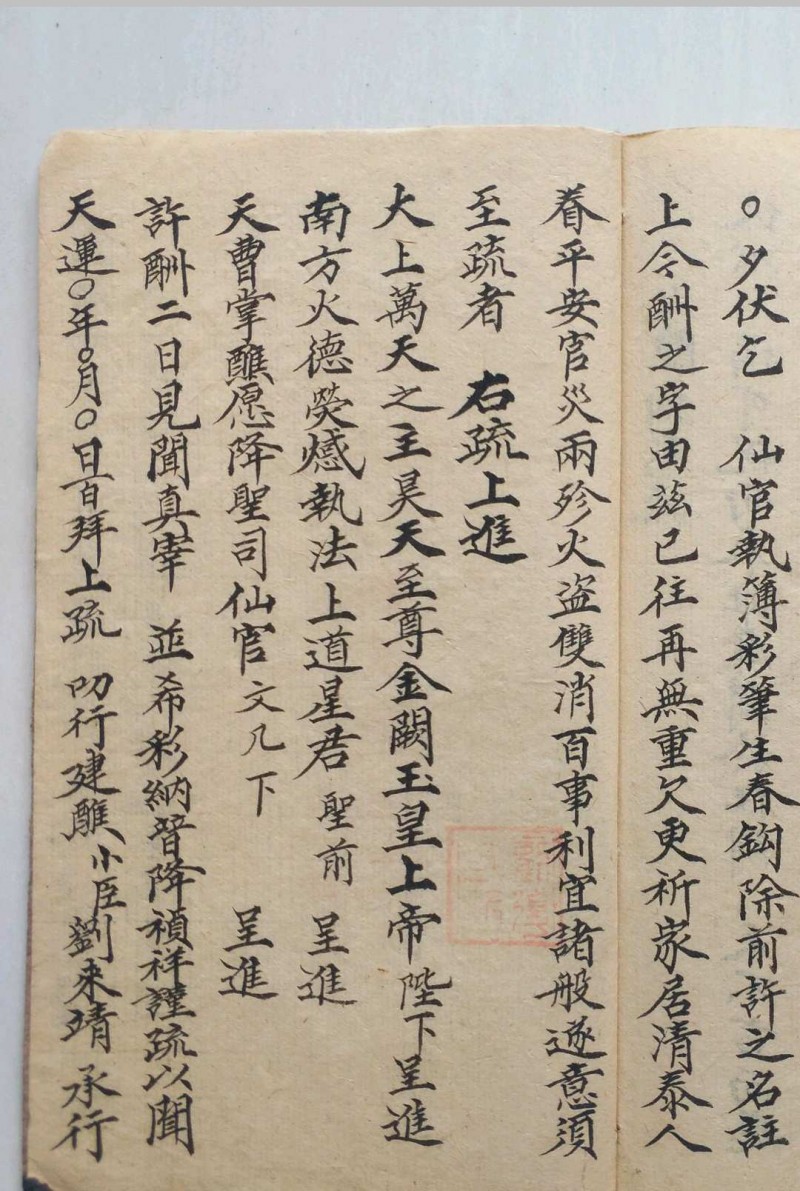 ○夕伏乞　仙官執簿彩筆生春鈎除前許之名註
上今酬之字由兹已往再無重欠更祈家居清泰人
眷平安官災兩殄火盗雙消百事利宜諸般遂意須
至疏者　右疏上進
大上萬天之主昊天至尊金闕玉皇上帝陛下呈進
南方火德熒惑執法上道星君聖前　呈進
天曹掌醮愿降聖司仙官文几下　呈進
許酬二日見聞真宰　並希彩納普降禎祥謹疏以聞
天運○年○月○日百拜上疏　叨行建醮小臣劉来靖承行